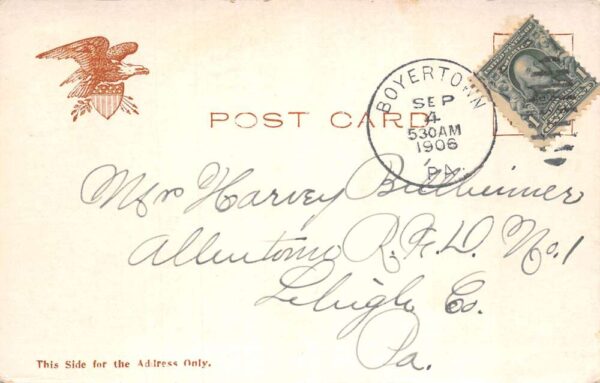 POST CARD
BOYERTOWN
SEP
4
530AM
1906
PA.
Mr Harvey Bittheimer
Allentown R.F.D. No. 1
Lehigh Co.
Pa.
This Side for the Address Only.